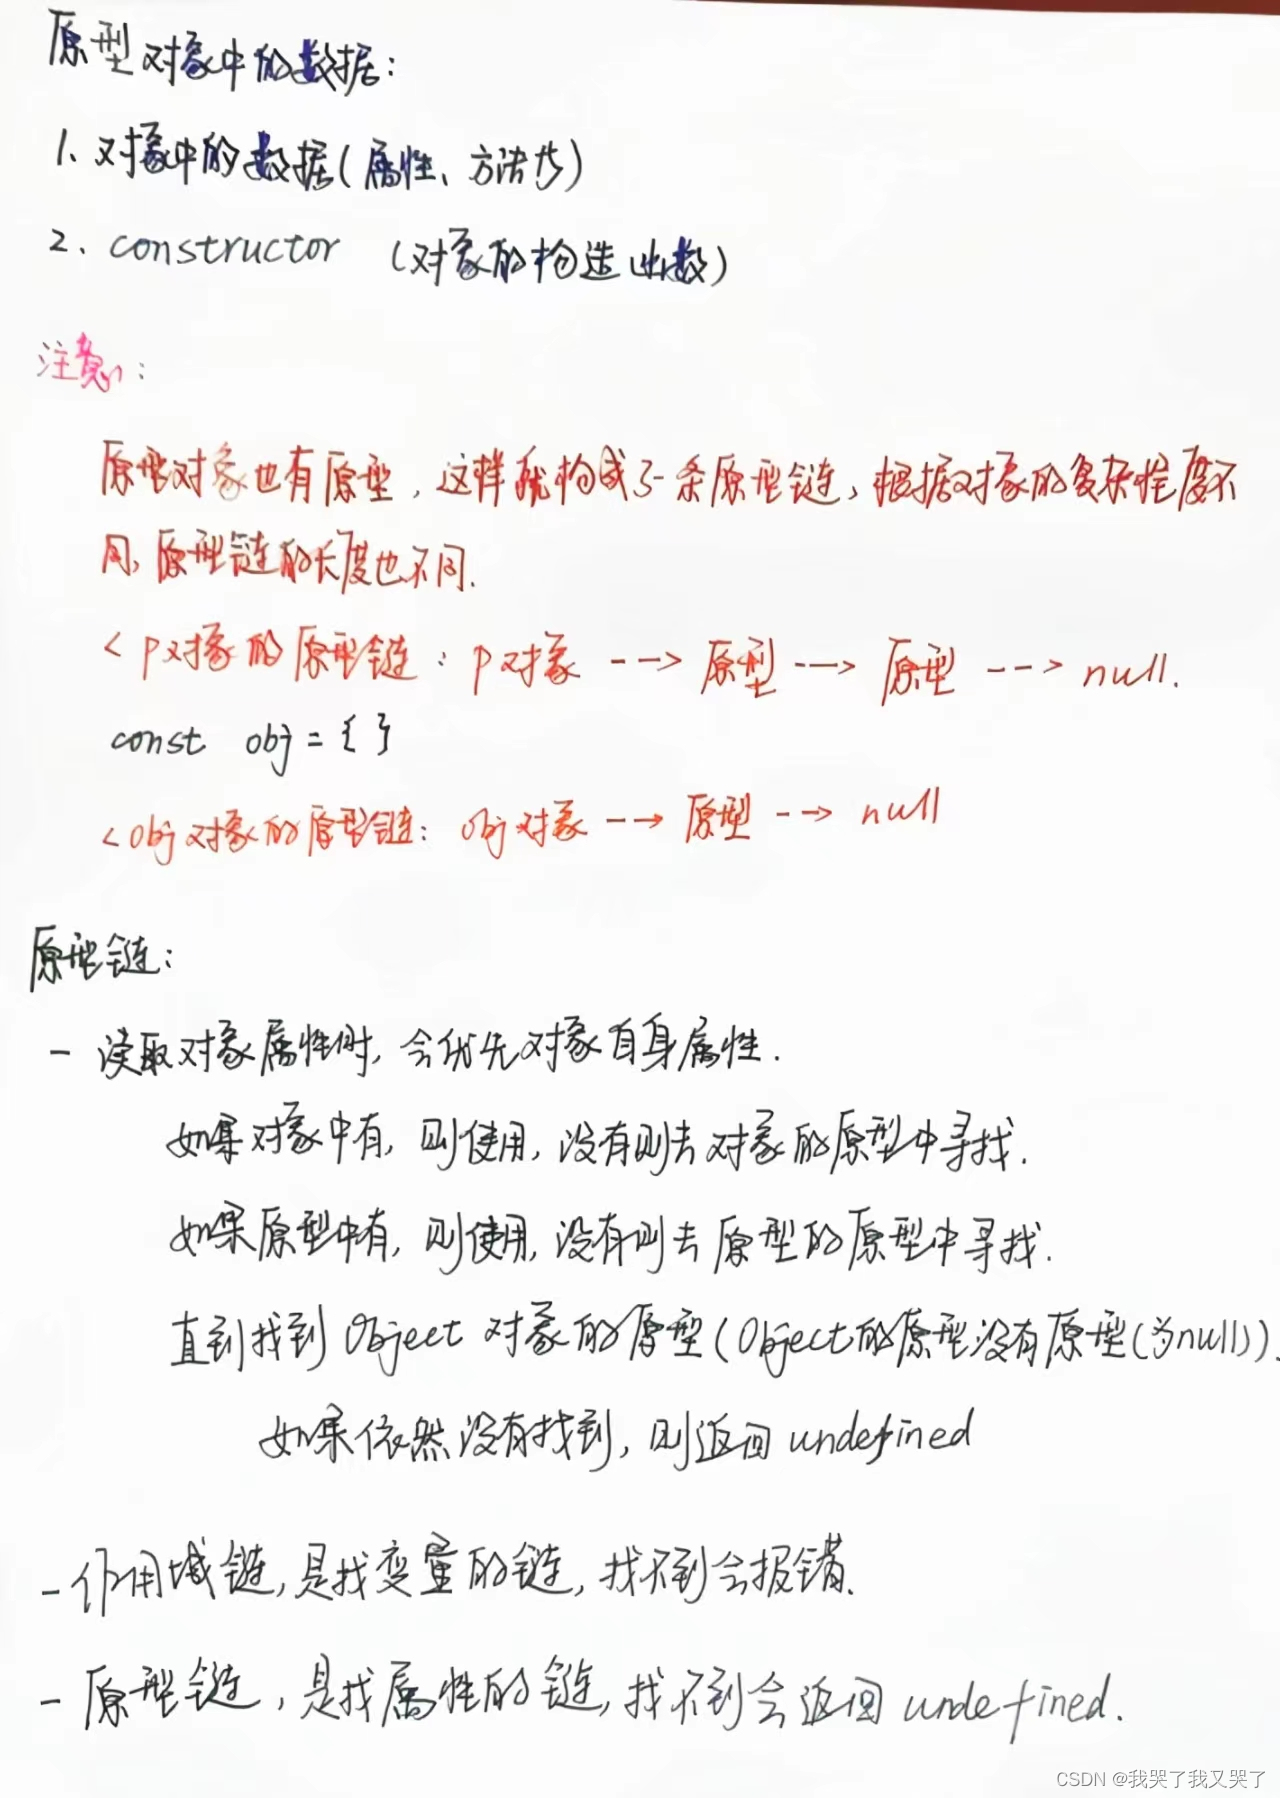 原型对象中的数据：
1、对象中的数据(属性、方法等)
2. constructor (对象的构造函数)
注意：
原型对象也有原型，这样就构成了一条原型链，根据对象的复杂程度不
同，原型链的长度也不同.
< p对象的原型链：p对象 --→ 原型 --→ 原型 ---> null.
const obj = { }
< obj对象的原型链：obj对象 --→ 原型 --→ null
原型链：
- 读取对象属性时，会优先对象自身属性.
如果对象中有，则使用，没有则去对象的原型中寻找.
如果原型中有，则使用，没有则去原型的原型中寻找.
直到找到Object对象的原型(Object的原型没有原型(为null)).
如果依然没有找到，则返回undefined
- 作用域链，是找变量的链，找不到会报错.
- 原型链，是找属性的链，找不到会返回undefined.
CSDN @我哭了我又哭了